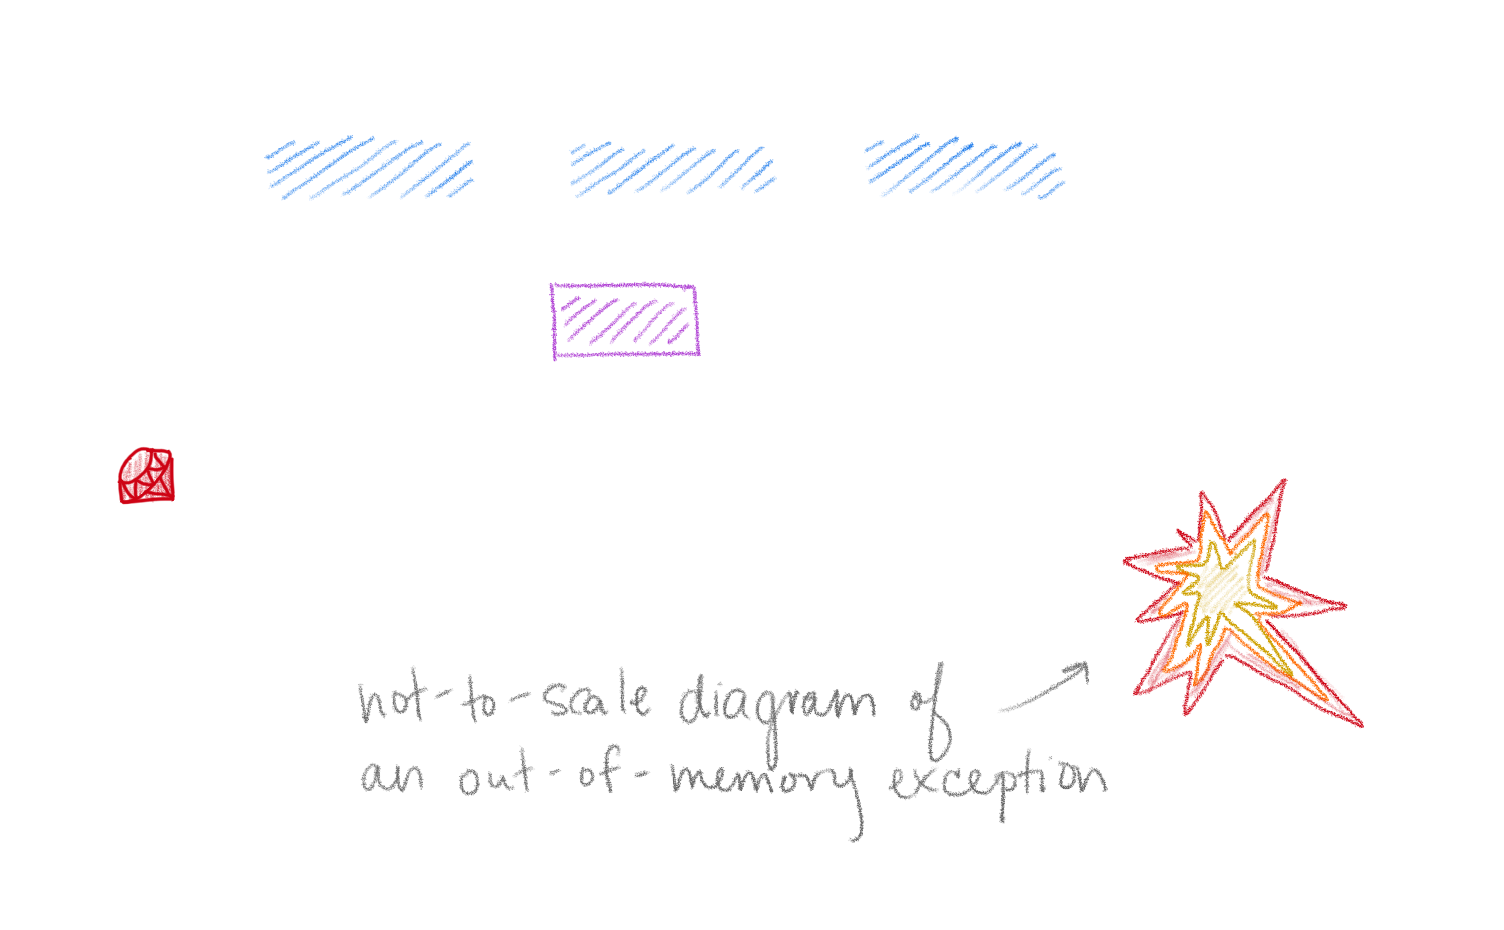 not-to-scale diagram of
an out-of-memory exception